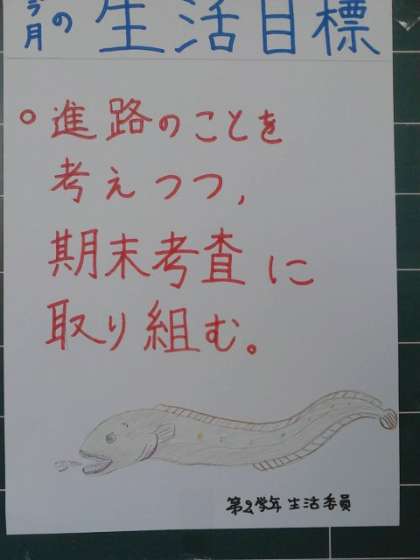 今月の 生活目標
○進路のことを
考えつつ,
期末考査に
取り組む。
第2学年 生活委員